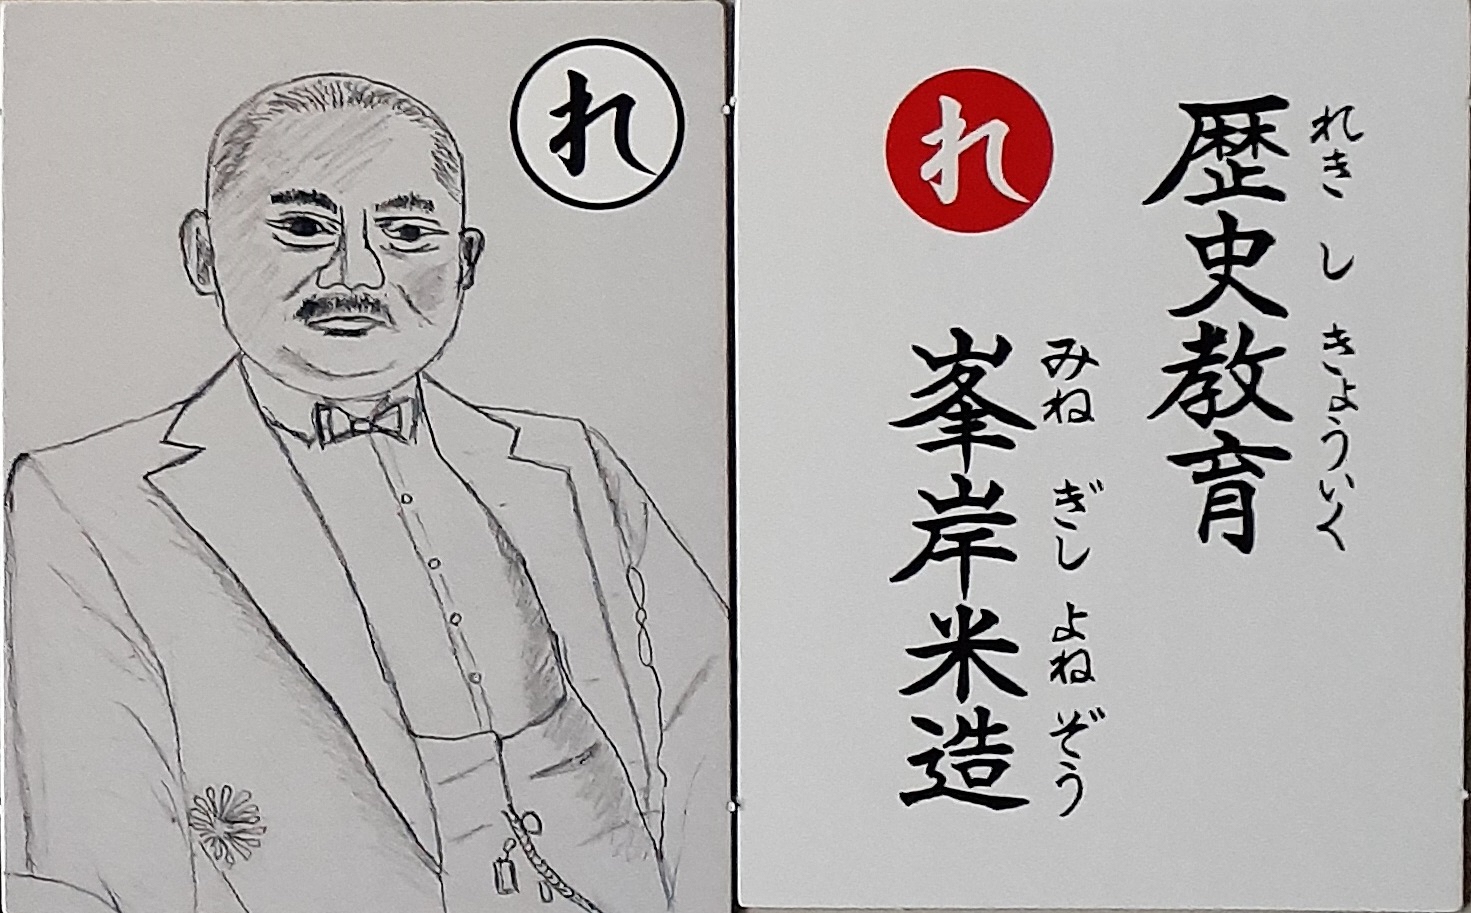 れ
れ
歴史教育
れきしきょういく
峯岸米造
みねぎしよねぞう